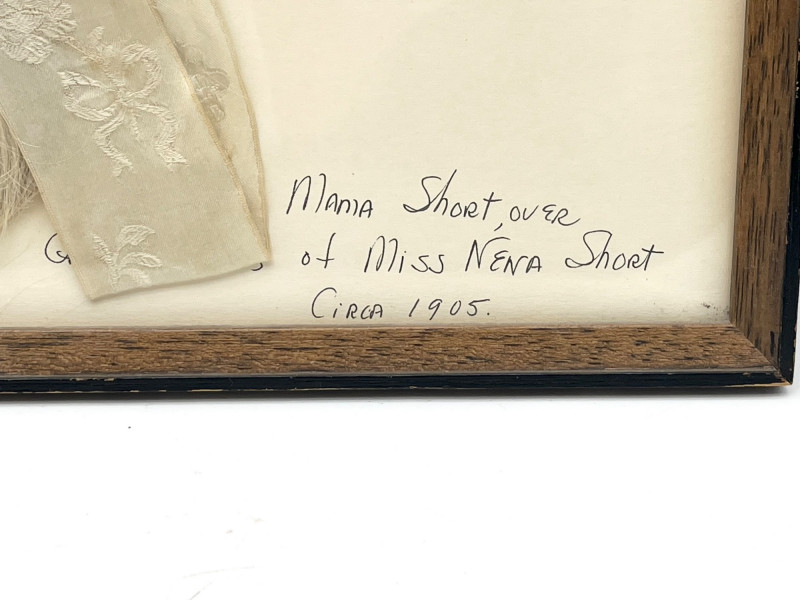 Mama Short, over
of Miss Nena Short
Circa 1905.